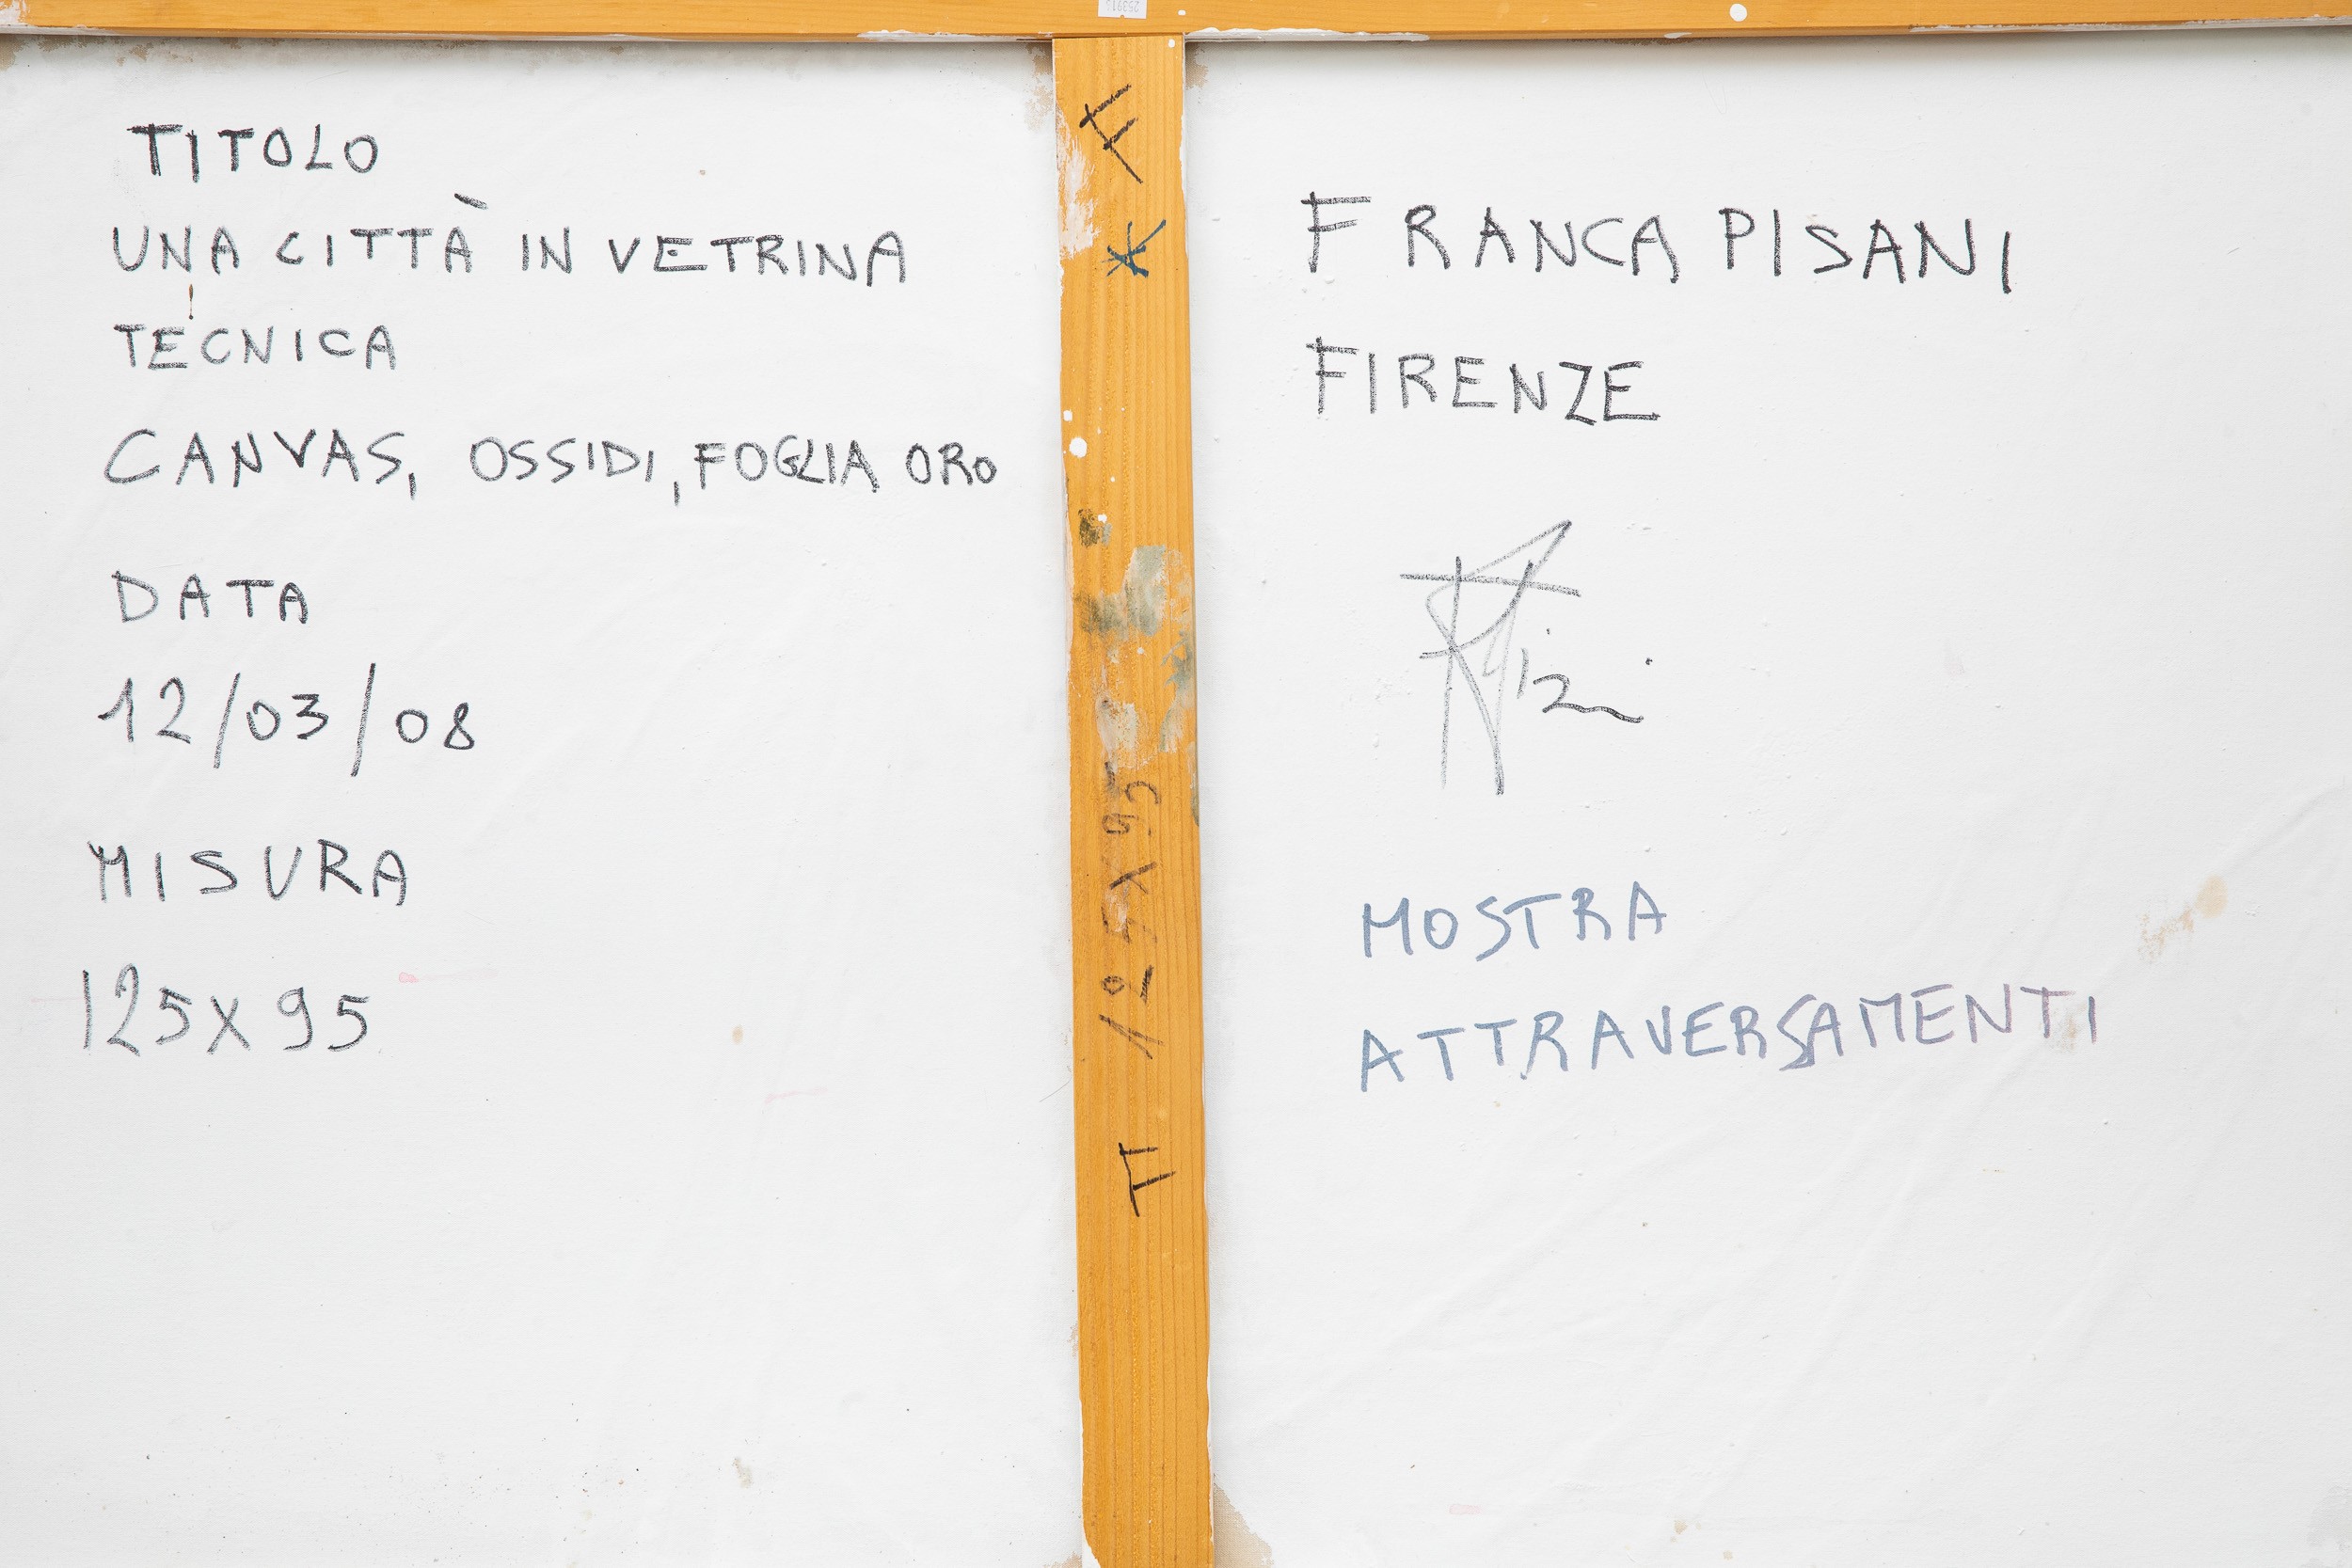 TITOLO
UNA CITTÀ IN VETRINA
TECNICA
CANVAS, OSSIDI, FOGLIA ORO
DATA
12/03/08
MISURA
125X95
F
125X95
FRANCA PISANI
FIRENZE
MOSTRA
ATTRAVERSAMENTI